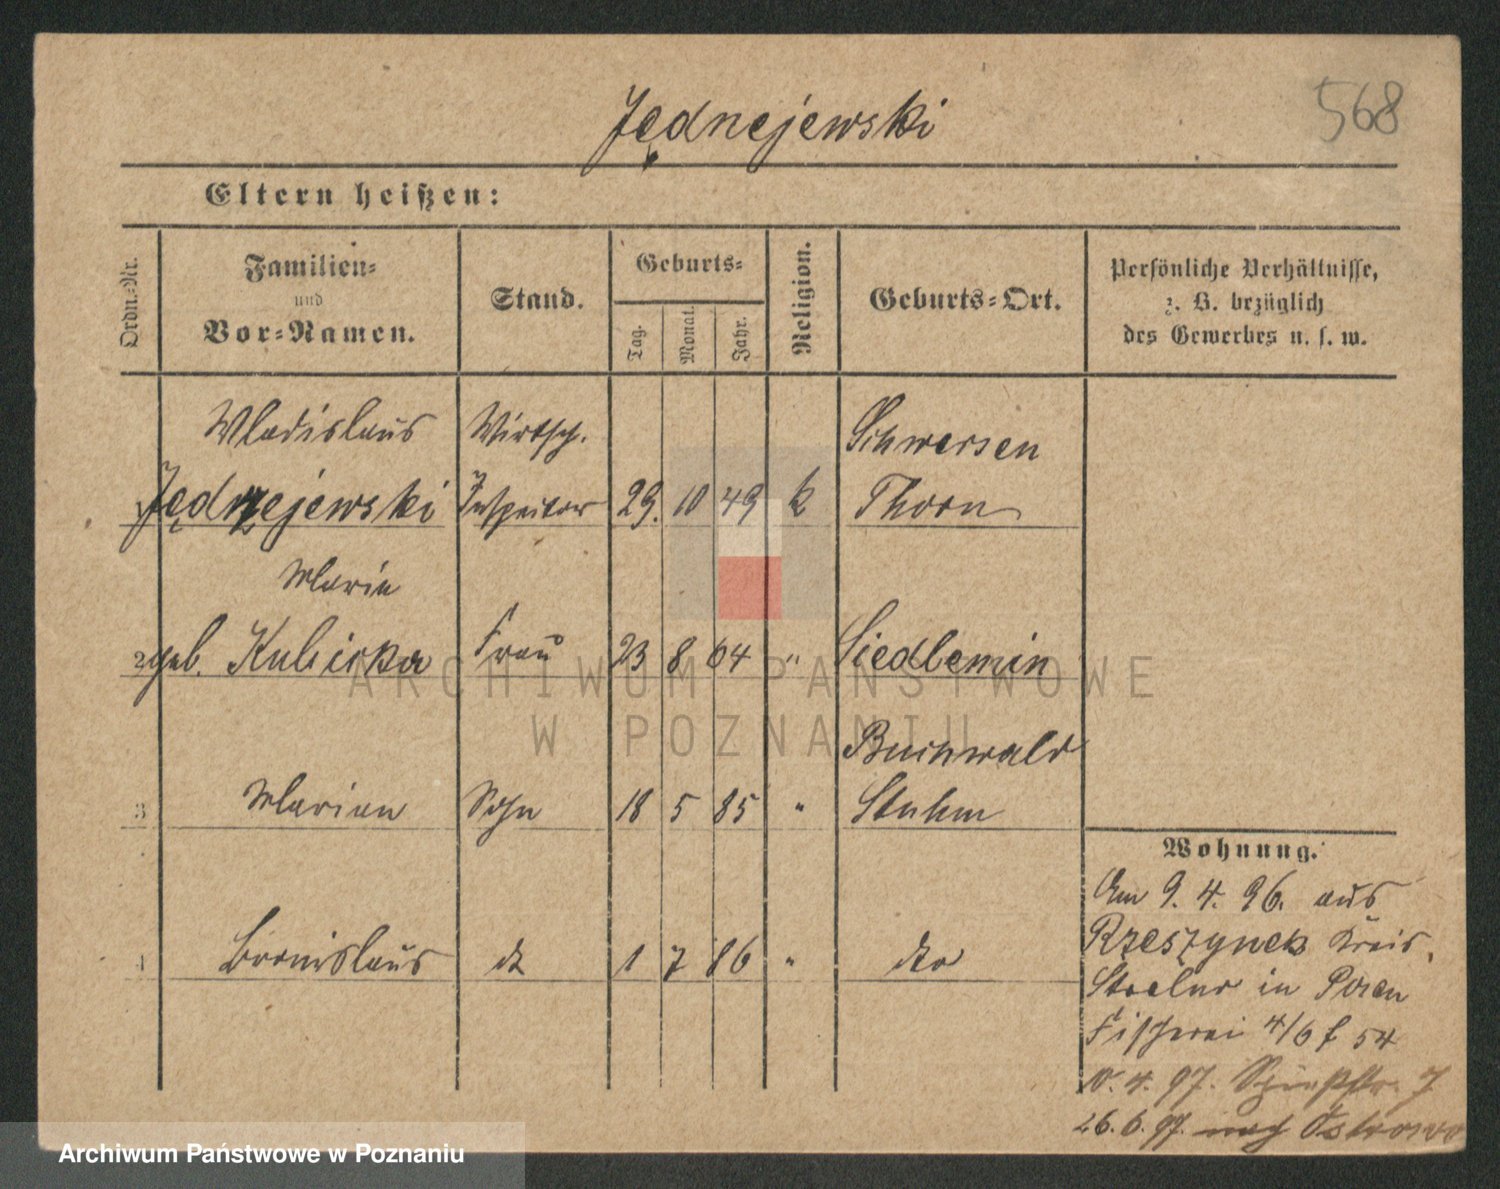 568
Jędnejewski
Eltern heißen:
Ordn.-Nr.
Familien-
und
Vor-Namen.
Stand.
Geburts-
Tag.
Monat.
Jahr.
Religion.
Geburts-Ort.
Persönliche Verhältnisse,
z. B. bezüglich
des Gewerbes u. s. w.
Wladislaus Wirtsch. Schwersen
Jędrzejewski Inspector 29. 10 49 k Thorn
Marie
2 geb. Kubicka Frau 23 8 64 " Siedlemin
Buchwald
3 Marian Sohn 18 5 85 " Stuhm
4 Bronislaus dt 1 7 86 " dto
Wohnung.
Am 9. 4. 96. aus
Rzeszynek Kreis
in Posen
Fischerei 4/6 54
10. 4. 97. 7
26. 6. 97. nach Ostrowo
ARCHIWUM PAŃSTWOWE
W POZNANIU
Archiwum Państwowe w Poznaniu